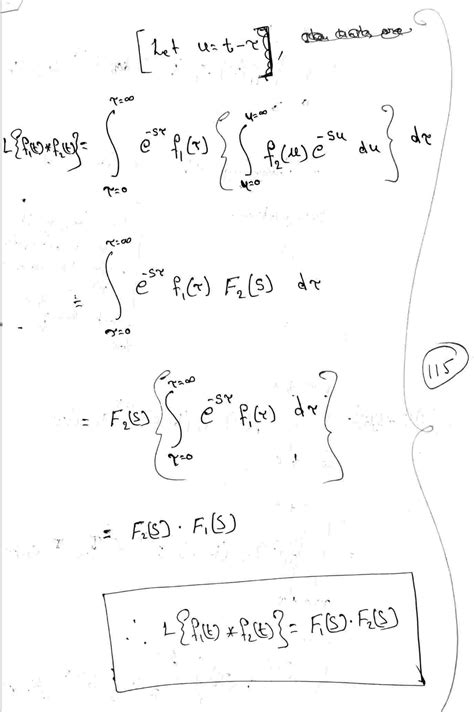 [Let u = t-τ],
L{f₁(t) * f₂(t)} = ∫_{τ=0}^{τ=∞} e^{-sτ} f₁(τ) { ∫_{u=0}^{u=∞} f₂(u) e^{-su} du } dτ
= ∫_{τ=0}^{τ=∞} e^{-sτ} f₁(τ) F₂(s) dτ
115
= F₂(s) { ∫_{τ=0}^{τ=∞} e^{-sτ} f₁(τ) dτ }.
= F₂(s) · F₁(s)
∴ L{f₁(t) * f₂(t)} = F₁(s) · F₂(s)